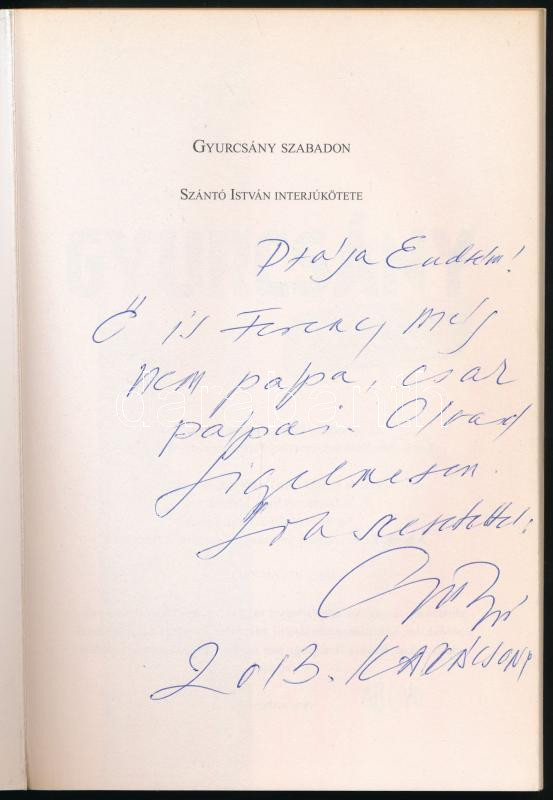 GYURCSÁNY SZABADON
SZÁNTÓ ISTVÁN INTERJÚKÖTETE
Drága Endrém!
Ő is Ferenc, még
nem pápa, csak
pápai. Olvasd
figyelmesen.
Sok szeretettel:
2013. KARÁCSONY
darabanth